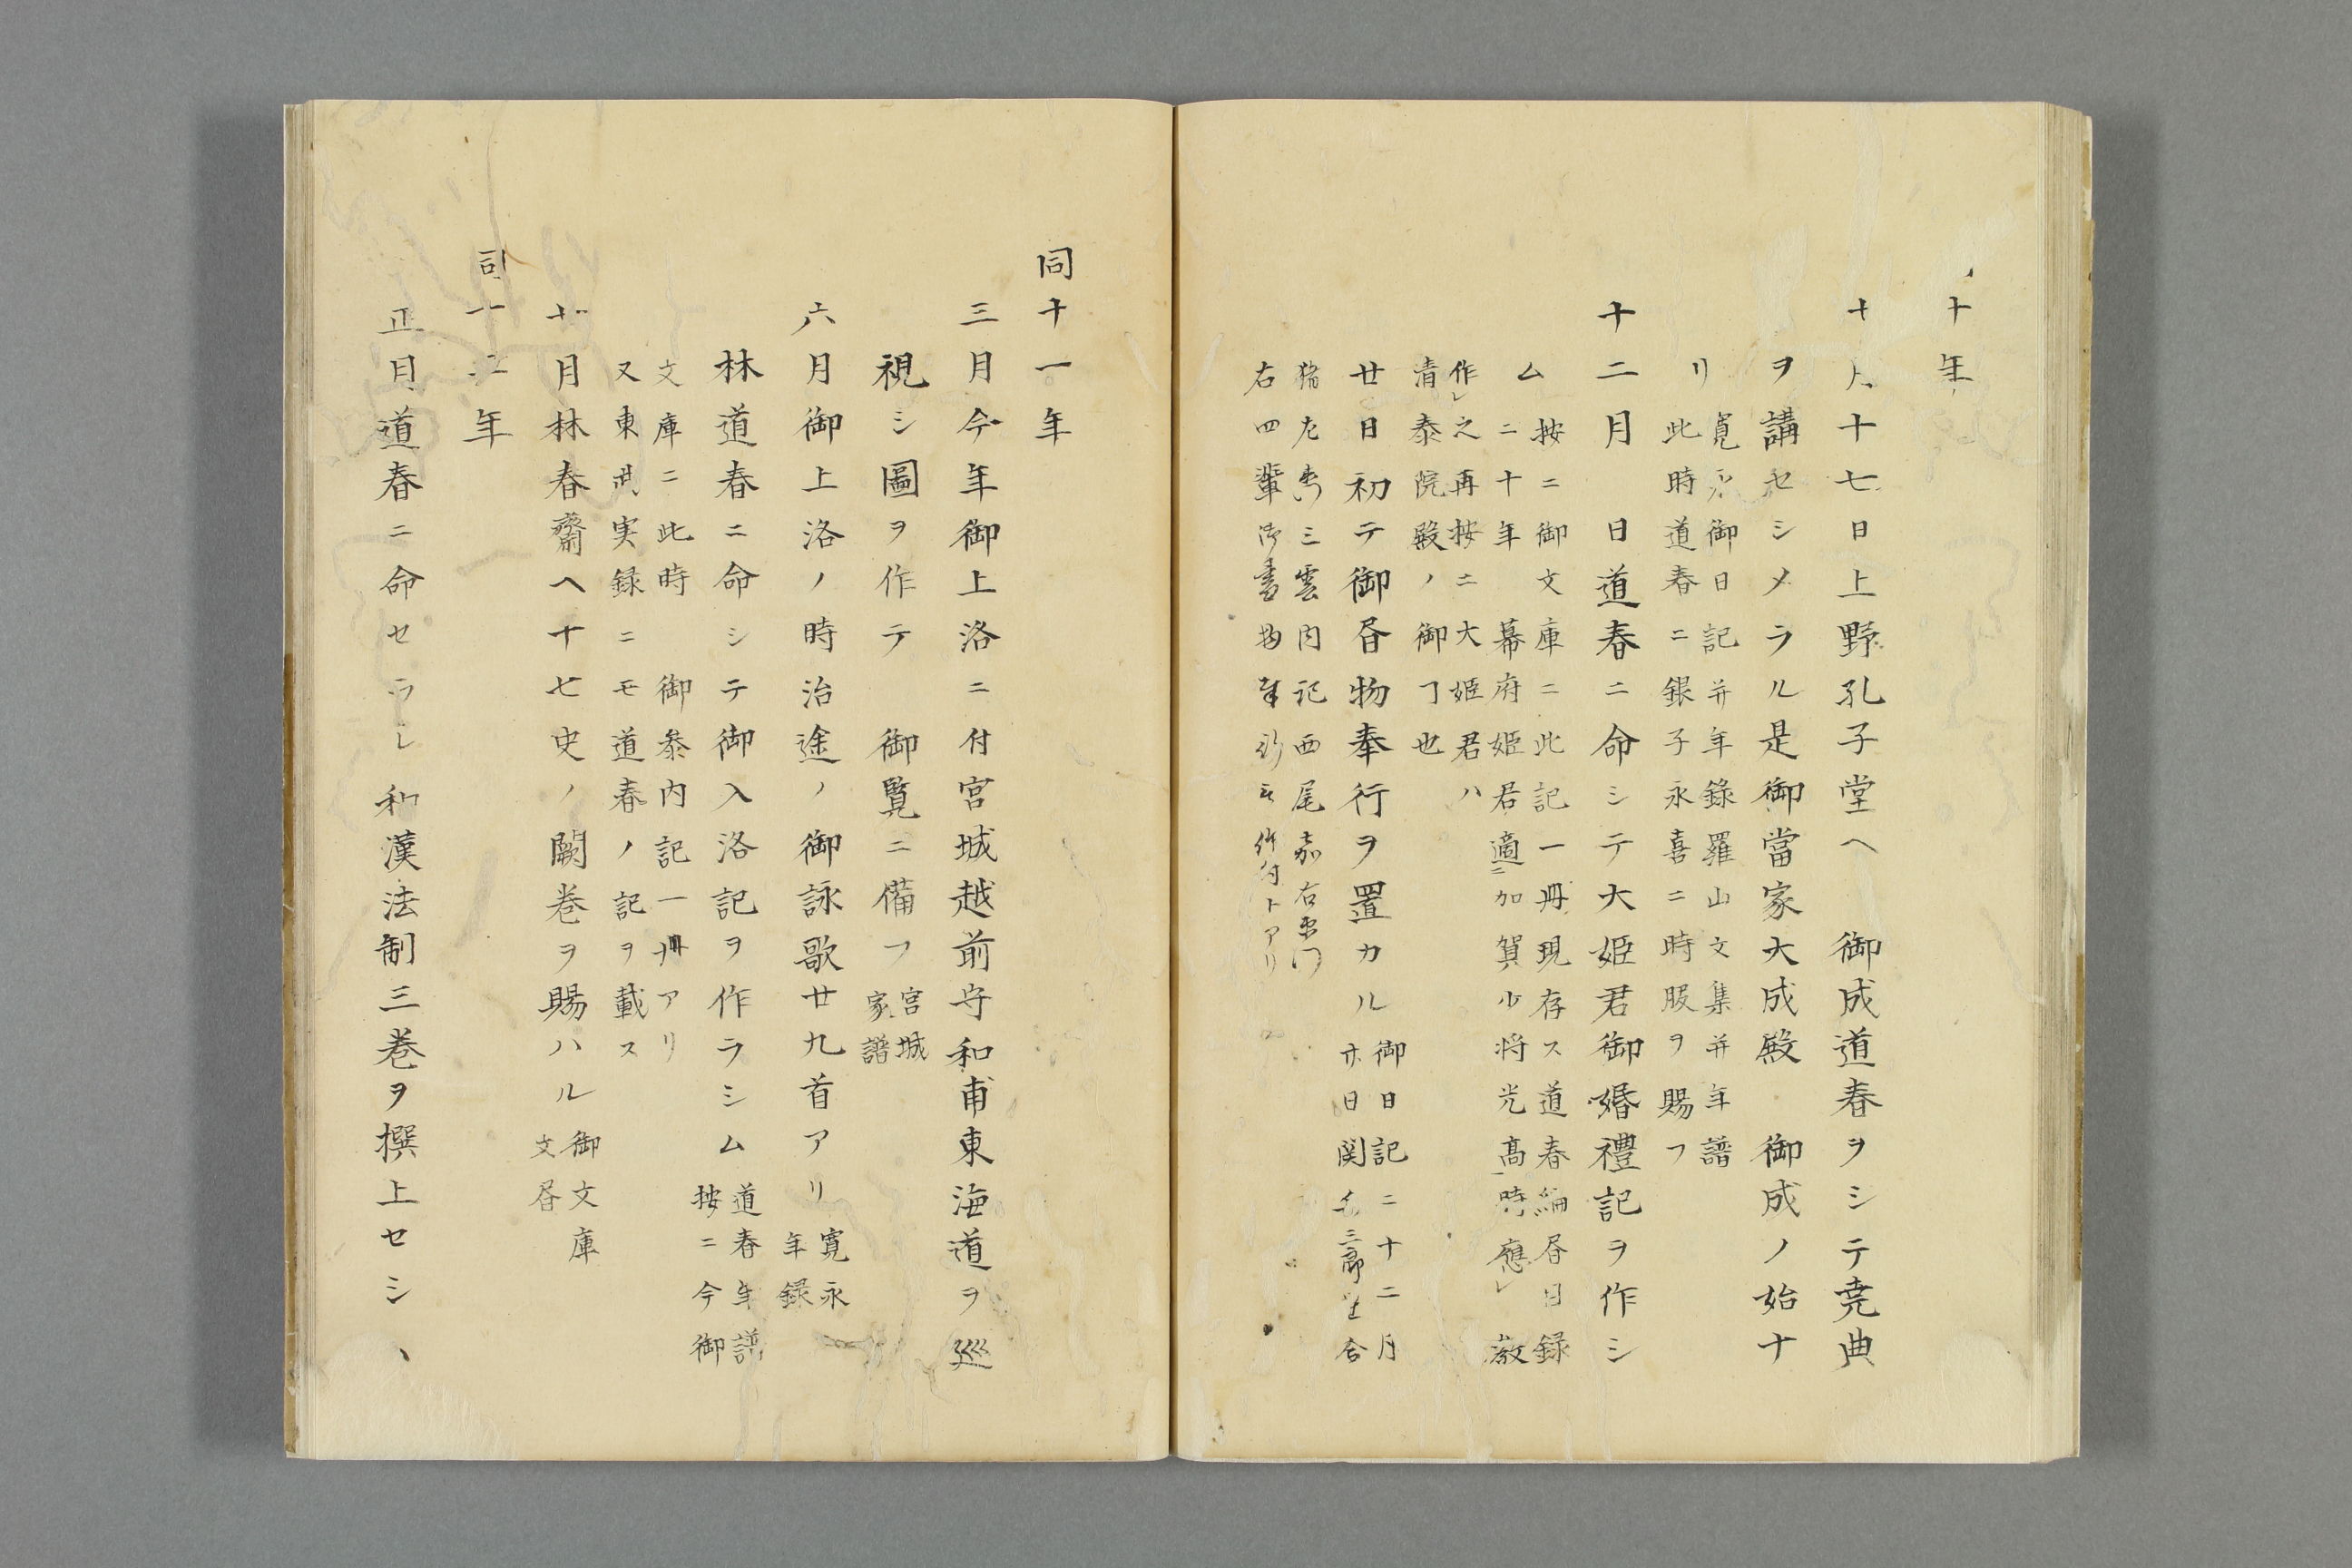 十年
十七日上野孔子堂ヘ　御成道春ヲシテ尭典
ヲ講セシメラル是御當家大成殿　御成ノ始ナ
リ
寛永御日記并年錄羅山文集并年譜
此時道春ニ銀子永喜ニ時服ヲ賜フ
十二月　日道春ニ命シテ大姫君御婚禮記ヲ作シ
ム
按ニ御文庫ニ此記一冊現存ス道春編昏目録
ニ十年　幕府姫君適ニ加賀少将光髙一時應レ　教
作レ之再按ニ大姫君ハ
清泰院殿ノ御丁也
廿日初テ御昏物奉行ヲ置カル
御日記ニ十二月
廿日関三郎
三雲内記西尾嘉右衛門
右四輩御書物トアリ
同十一年
三月今年御上洛ニ付宮城越前守和甫東海道ヲ巡
視シ圖ヲ作テ　御覧ニ備フ
宮城
家譜
六月御上洛ノ時治途ノ御詠歌廿九首アリ
寛永
年録
林道春ニ命シテ御入洛記ヲ作ラシム
道春年譜
按ニ今御
文庫ニ此時　御参内記一冊アリ
又東武実録ニモ道春ノ記ヲ載ス
月林春齋ヘ十七史ノ闕巻ヲ賜ハル
御文庫
文昏
同十二年
正月道春ニ命セラレ和漢法制三巻ヲ撰上セシ